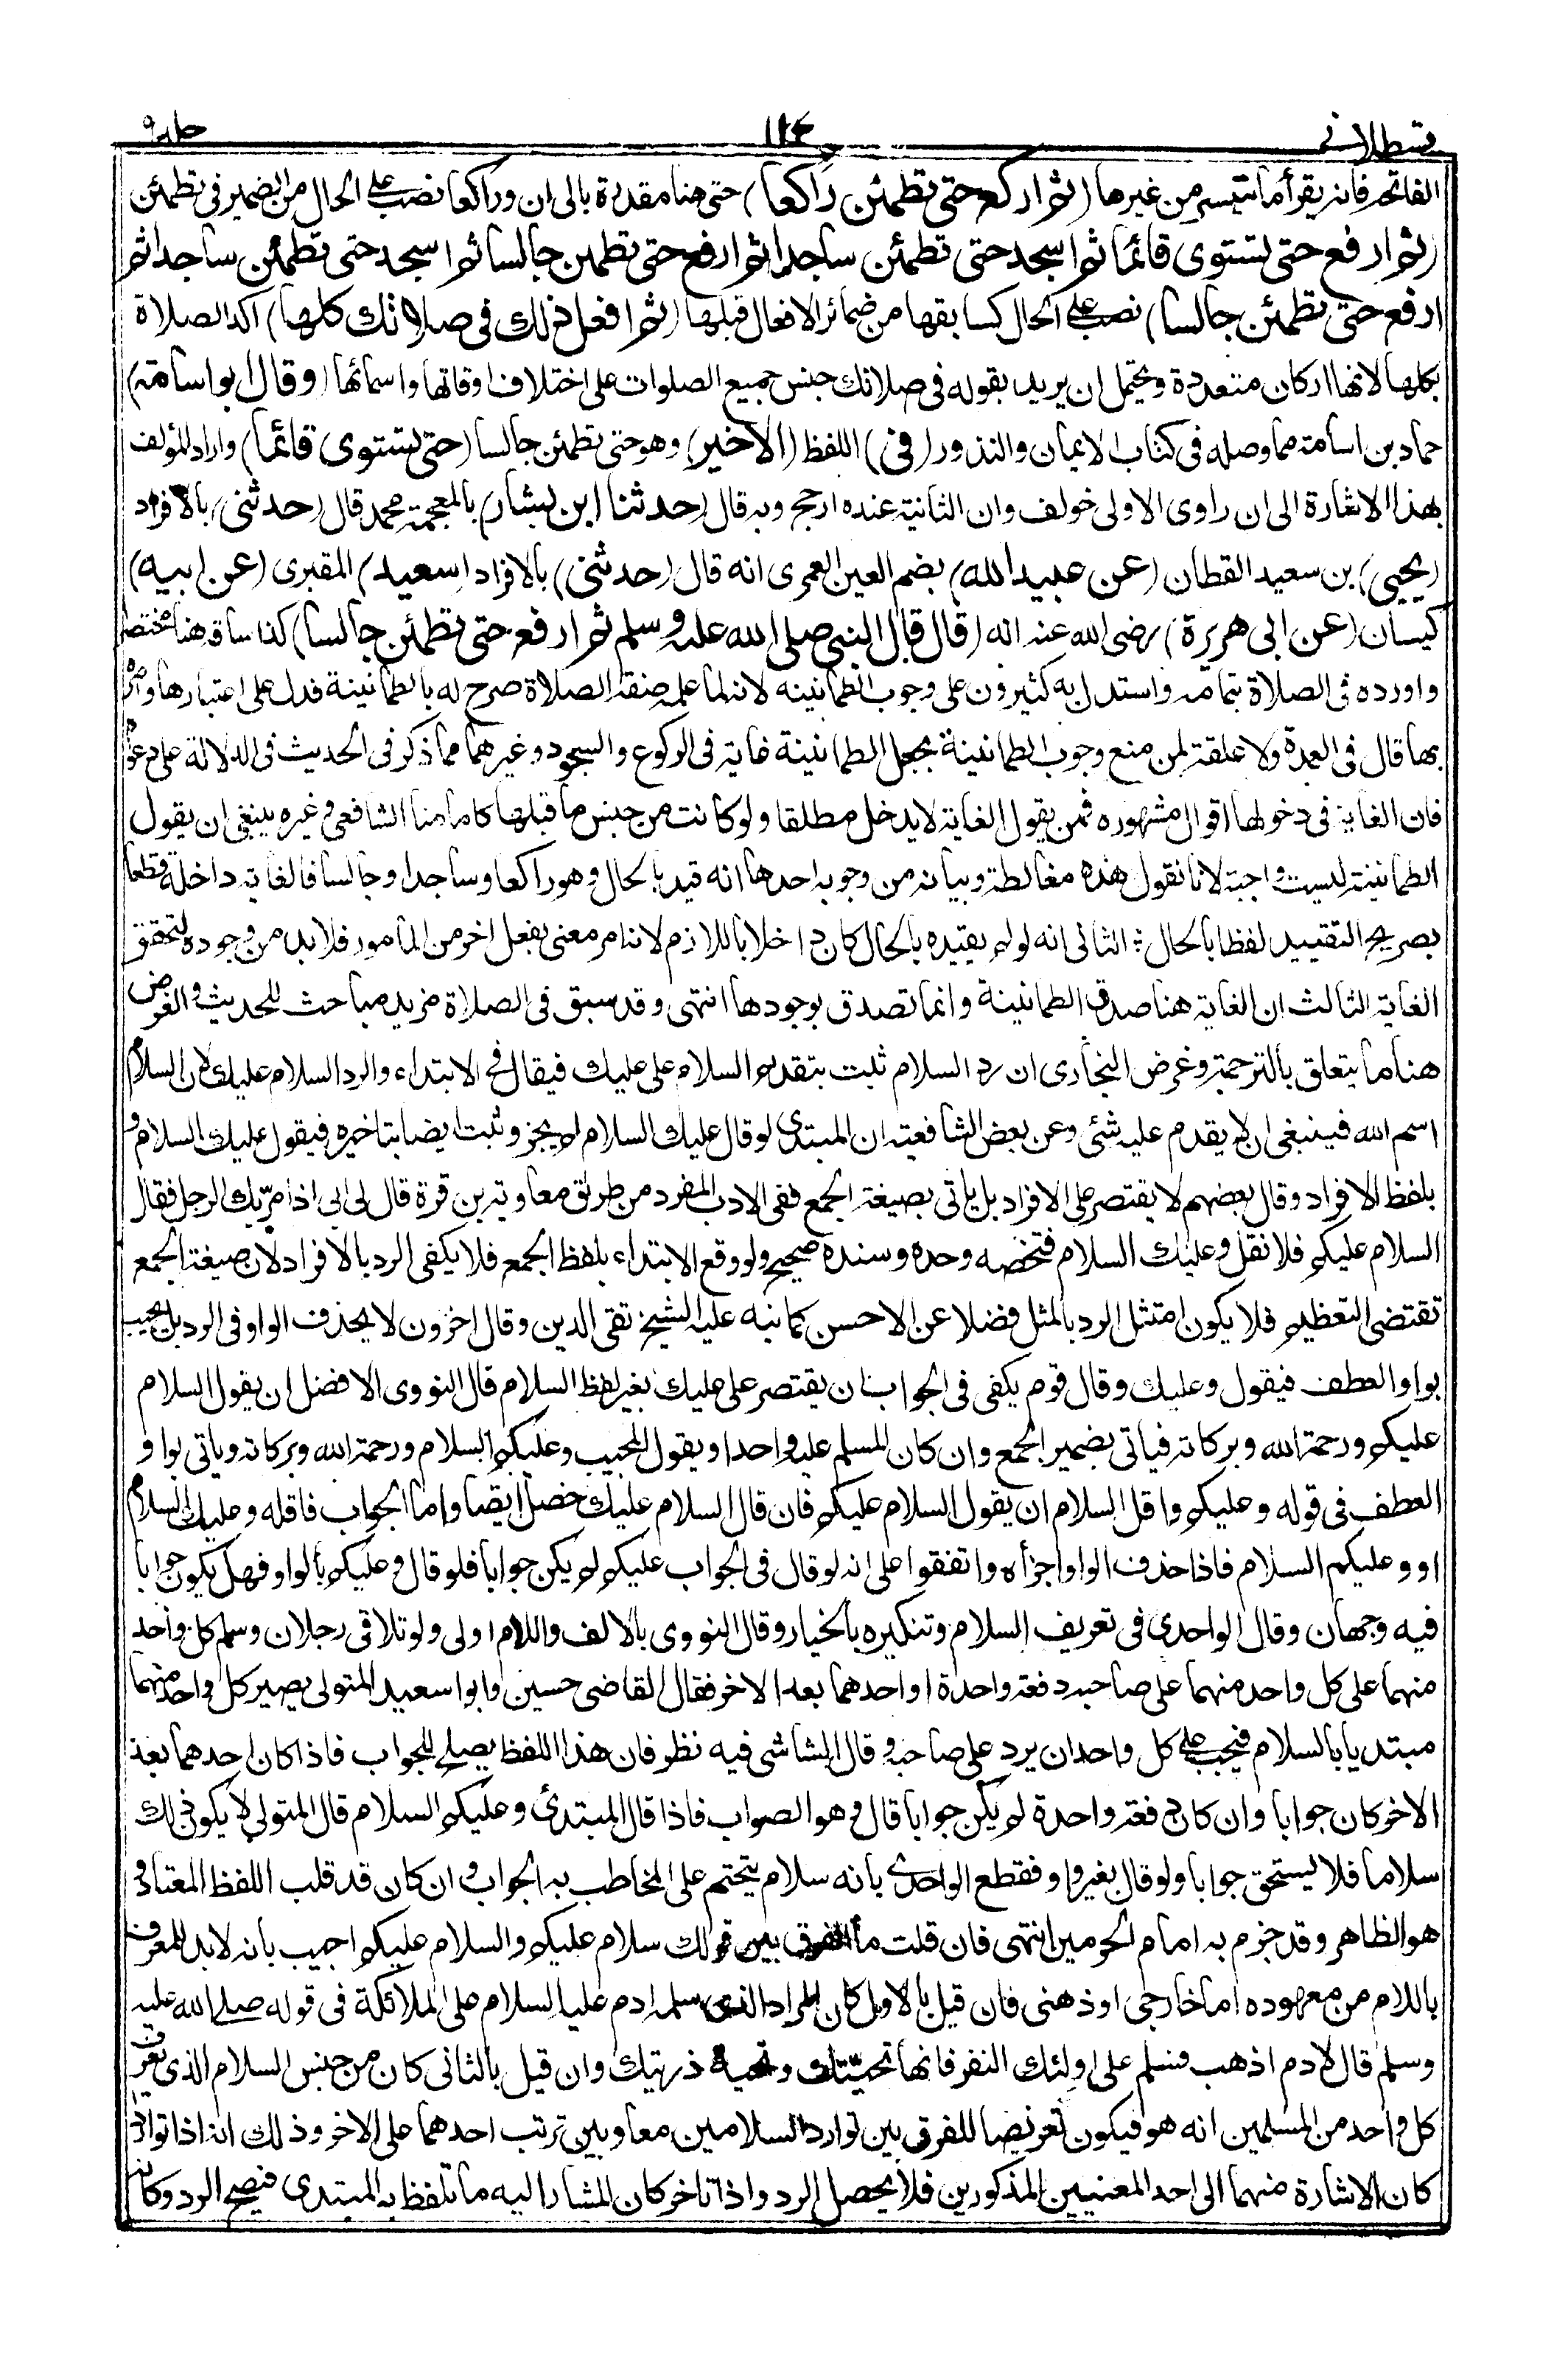 قسطلانى ١١٤ جلد ٩
الفاتحة فانه يقرأ ما تيسر من غيرها (ثم اركع حتى تطمئن راكعا) حتى هنا مقدرة بالى ان وراكعا نصب على الحال من الضمير فى تطمئن
(ثم ارفع حتى تستوى قائما ثم اسجد حتى تطمئن ساجدا ثم ارفع حتى تطمئن جالسا ثم اسجد حتى تطمئن ساجدا ثم
ارفع حتى تطمئن جالسا) نصب على الحال كسابقها من ضمائر الافعال قبلها (ثم افعل ذلك فى صلاتك كلها) اكد الصلاة
بكلها لانها اركان متعددة ويحتمل ان يريد بقوله فى صلاتك جنس جميع الصلوات على اختلاف اوقاتها واسمائها (وقال ابو اسامة)
حماد بن اسامة مما وصله فى كتاب الايمان والنذور (فى) اللفظ (الاخير) وهو حتى تطمئن جالسا (حتى تستوى قائما) واراد المؤلف
بهذا الاشارة الى ان راوى الاولى خولف وان الثانية عنده ارجح وبه قال (حدثنا ابن بشار) بالمعجمة محمد قال (حدثنى) بالافراد
(يحيى) بن سعيد القطان (عن عبيد الله) بضم العين العمرى انه قال (حدثنى) بالافراد (سعيد) المقبرى (عن ابيه)
كيسان (عن ابى هريرة) رضى الله عنه انه (قال قال النبى صلى الله عليه وسلم ثم ارفع حتى تطمئن جالسا) كذا ساقه هنا مختصرا
واورده فى الصلاة بتمامه واستدل به كثيرون على وجوب الطمانينه لانه لما علمه صفة الصلاة صرح له بالطمانينة فدل على اعتبارها وامره
بها قال فى العمدة ولا علقة لمن منع وجوب الطمانينة بجعل الطمانينة غاية فى الركوع والسجود وغيرهما مما ذكر فى الحديث فى الدلالة على دعواه
فان الغاية فى دخولها اقوال مشهوره فمن يقول الغاية لا يدخل مطلقا ولو كانت من جنس ما قبلها كامامنا الشافعى وغيره ينبغى ان يقول
الطمانينة ليست واجبة لانا نقول هذه مغالطة وبيانه من وجوه احدها انه قيد بالحال وهو راكعا وساجدا وجالسا فالغاية داخلة قطعا
بصريح التقييد لفظا بالحال ؛ الثانى انه لو لم يقيده بالحال كان داخلا باللازم لانه امر معنى بفعل اخر من المأمور فلا بد من وجوده لتحقق
الغاية الثالث ان الغاية هنا صدق الطمانينة وانما تصدق بوجودها انتهى وقد سبق فى الصلاة مزيد مباحث للحديث والغرض
هنا ما يتعلق بالترجمة وغرض البخارى ان رد السلام ثبت بتقديم السلام على عليك فيقال فى الابتداء والرد السلام عليك لان السلام
اسم الله فينبغى ان لا يقدم عليه شئ وعن بعض الشافعية ان المبتدى لو قال عليك السلام لم يجز وثبت ايضا بتاخيره فيقول عليك السلام و
بلفظ الافراد وقال بعضهم لا يقتصر على الافراد بل ياتى بصيغة الجمع ففى الادب المفرد من طريق معاوية بن قرة قال لى ابى اذا مر بك الرجل فقال
السلام عليكم فلا تقل وعليك السلام فتخصه وحده وسنده صحيح ولو وقع الابتداء بلفظ الجمع فلا يكفى الرد بالافراد لان صيغة الجمع
تقتضى التعظيم فلا يكون امتثل الرد بالمثل فضلا عن الاحسن كما نبه عليه الشيخ تقى الدين وقال اخرون لا يحذف الواو فى الرد بل يجيب
بواو العطف فيقول وعليك وقال قوم يكفى فى الجواب ان يقتصر على عليك بغير لفظ السلام قال النووى الافضل ان يقول السلام
عليكم ورحمة الله وبركاته فياتى بضمير الجمع وان كان المسلم عليه واحدا ويقول المجيب وعليكم السلام ورحمة الله وبركاته وياتى بواو
العطف فى قوله وعليكم واقل السلام ان يقول السلام عليكم فان قال السلام عليك حصل ايضا واما الجواب فاقله وعليك السلام
او وعليكم السلام فاذا حذف الواو اجزأه واتفقوا على انه لو قال فى الجواب عليكم لم يكن جوابا فلو قال وعليكم بالواو فهل يكون جوابا
فيه وجهان وقال الواحدى فى تعريف السلام وتنكيره بالخيار وقال النووى بالالف واللام اولى ولو تلاقى رجلان وسلم كل واحد
منهما على كل واحد منهما على صاحبه دفعة واحدة او احدهما بعد الاخر فقال القاضى حسين وابو سعيد المتولى يصير كل واحد منهما
مبتديا بالسلام فيجب على كل واحد ان يرد على صاحبه وقال الشاشى فيه نظر فان هذا اللفظ يصلح للجواب فاذا كان احدهما بعد
الاخر كان جوابا وان كان دفعة واحدة لم يكن جوابا قال وهو الصواب فاذا قال المبتدئ وعليكم السلام قال المتولى لا يكون ذلك
سلاما فلا يستحق جوابا ولو قال بغير واو فقطع الواحدى بانه سلام يتحتم على المخاطب به الجواب وان كان قد قلب اللفظ المعتاد و
هو الظاهر وقد جزم به امام الحرمين انتهى فان قلت ما الفرق بين قولك سلام عليكم والسلام عليكم اجيب بانه لا بد للمعرف
باللام من معهوده اما خارجى او ذهنى فان قيل بالاول كان المراد الذى سلمه ادم عليه السلام على الملائكة فى قوله صلى الله عليه
وسلم قال لادم اذهب فسلم على اولئك النفر فانها تحيتك وتحية ذريتك وان قيل بالثانى كان من جنس السلام الذى يعرف
كل واحد من المسلمين انه هو فيكون تعريضا للفرق بين توارد السلامين معا وبين ترتب احدهما على الاخر وذلك انه اذا تواردا
كان الاشارة منهما الى احد المعنيين المذكورين فلا يحصل الرد واذا تاخر كان المشار اليه ما تلفظ به المبتدى فيصح الرد وكانه